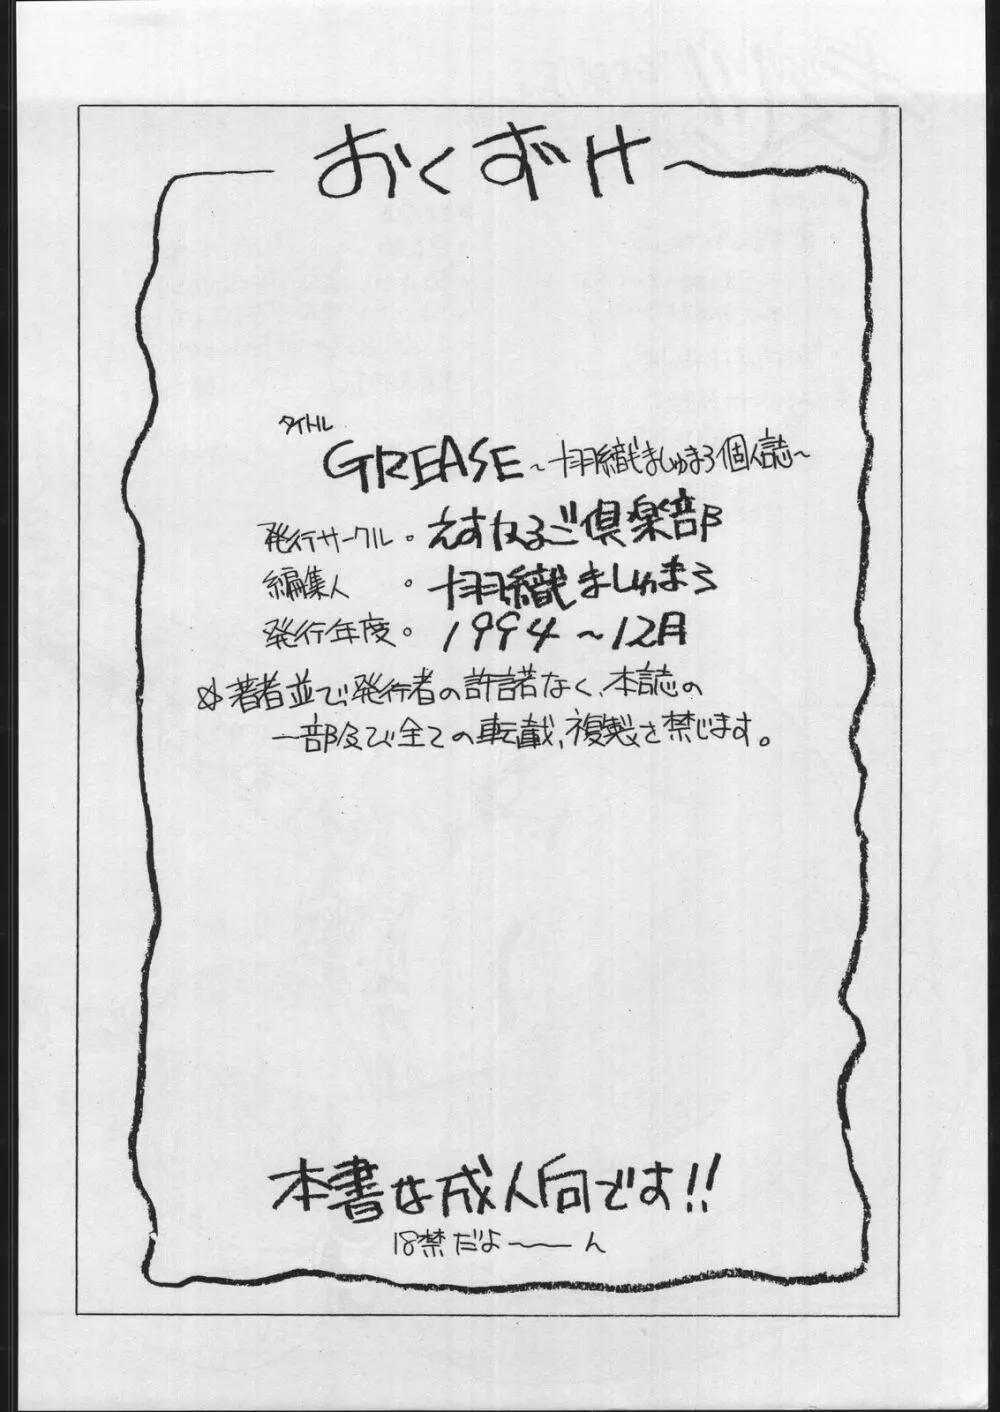 おくずけ
タイトル
GREASE ～羽織ましゅまろ個人誌～
発行サークル。えすかるご倶楽部
編集人　。羽織ましゅまろ
発行年度。1994～12月
☆著者並び、発行者の許諾なく、本誌の
一部及び全ての転載、複製を禁じます。
本書は成人向です!!
18禁だよ～ん